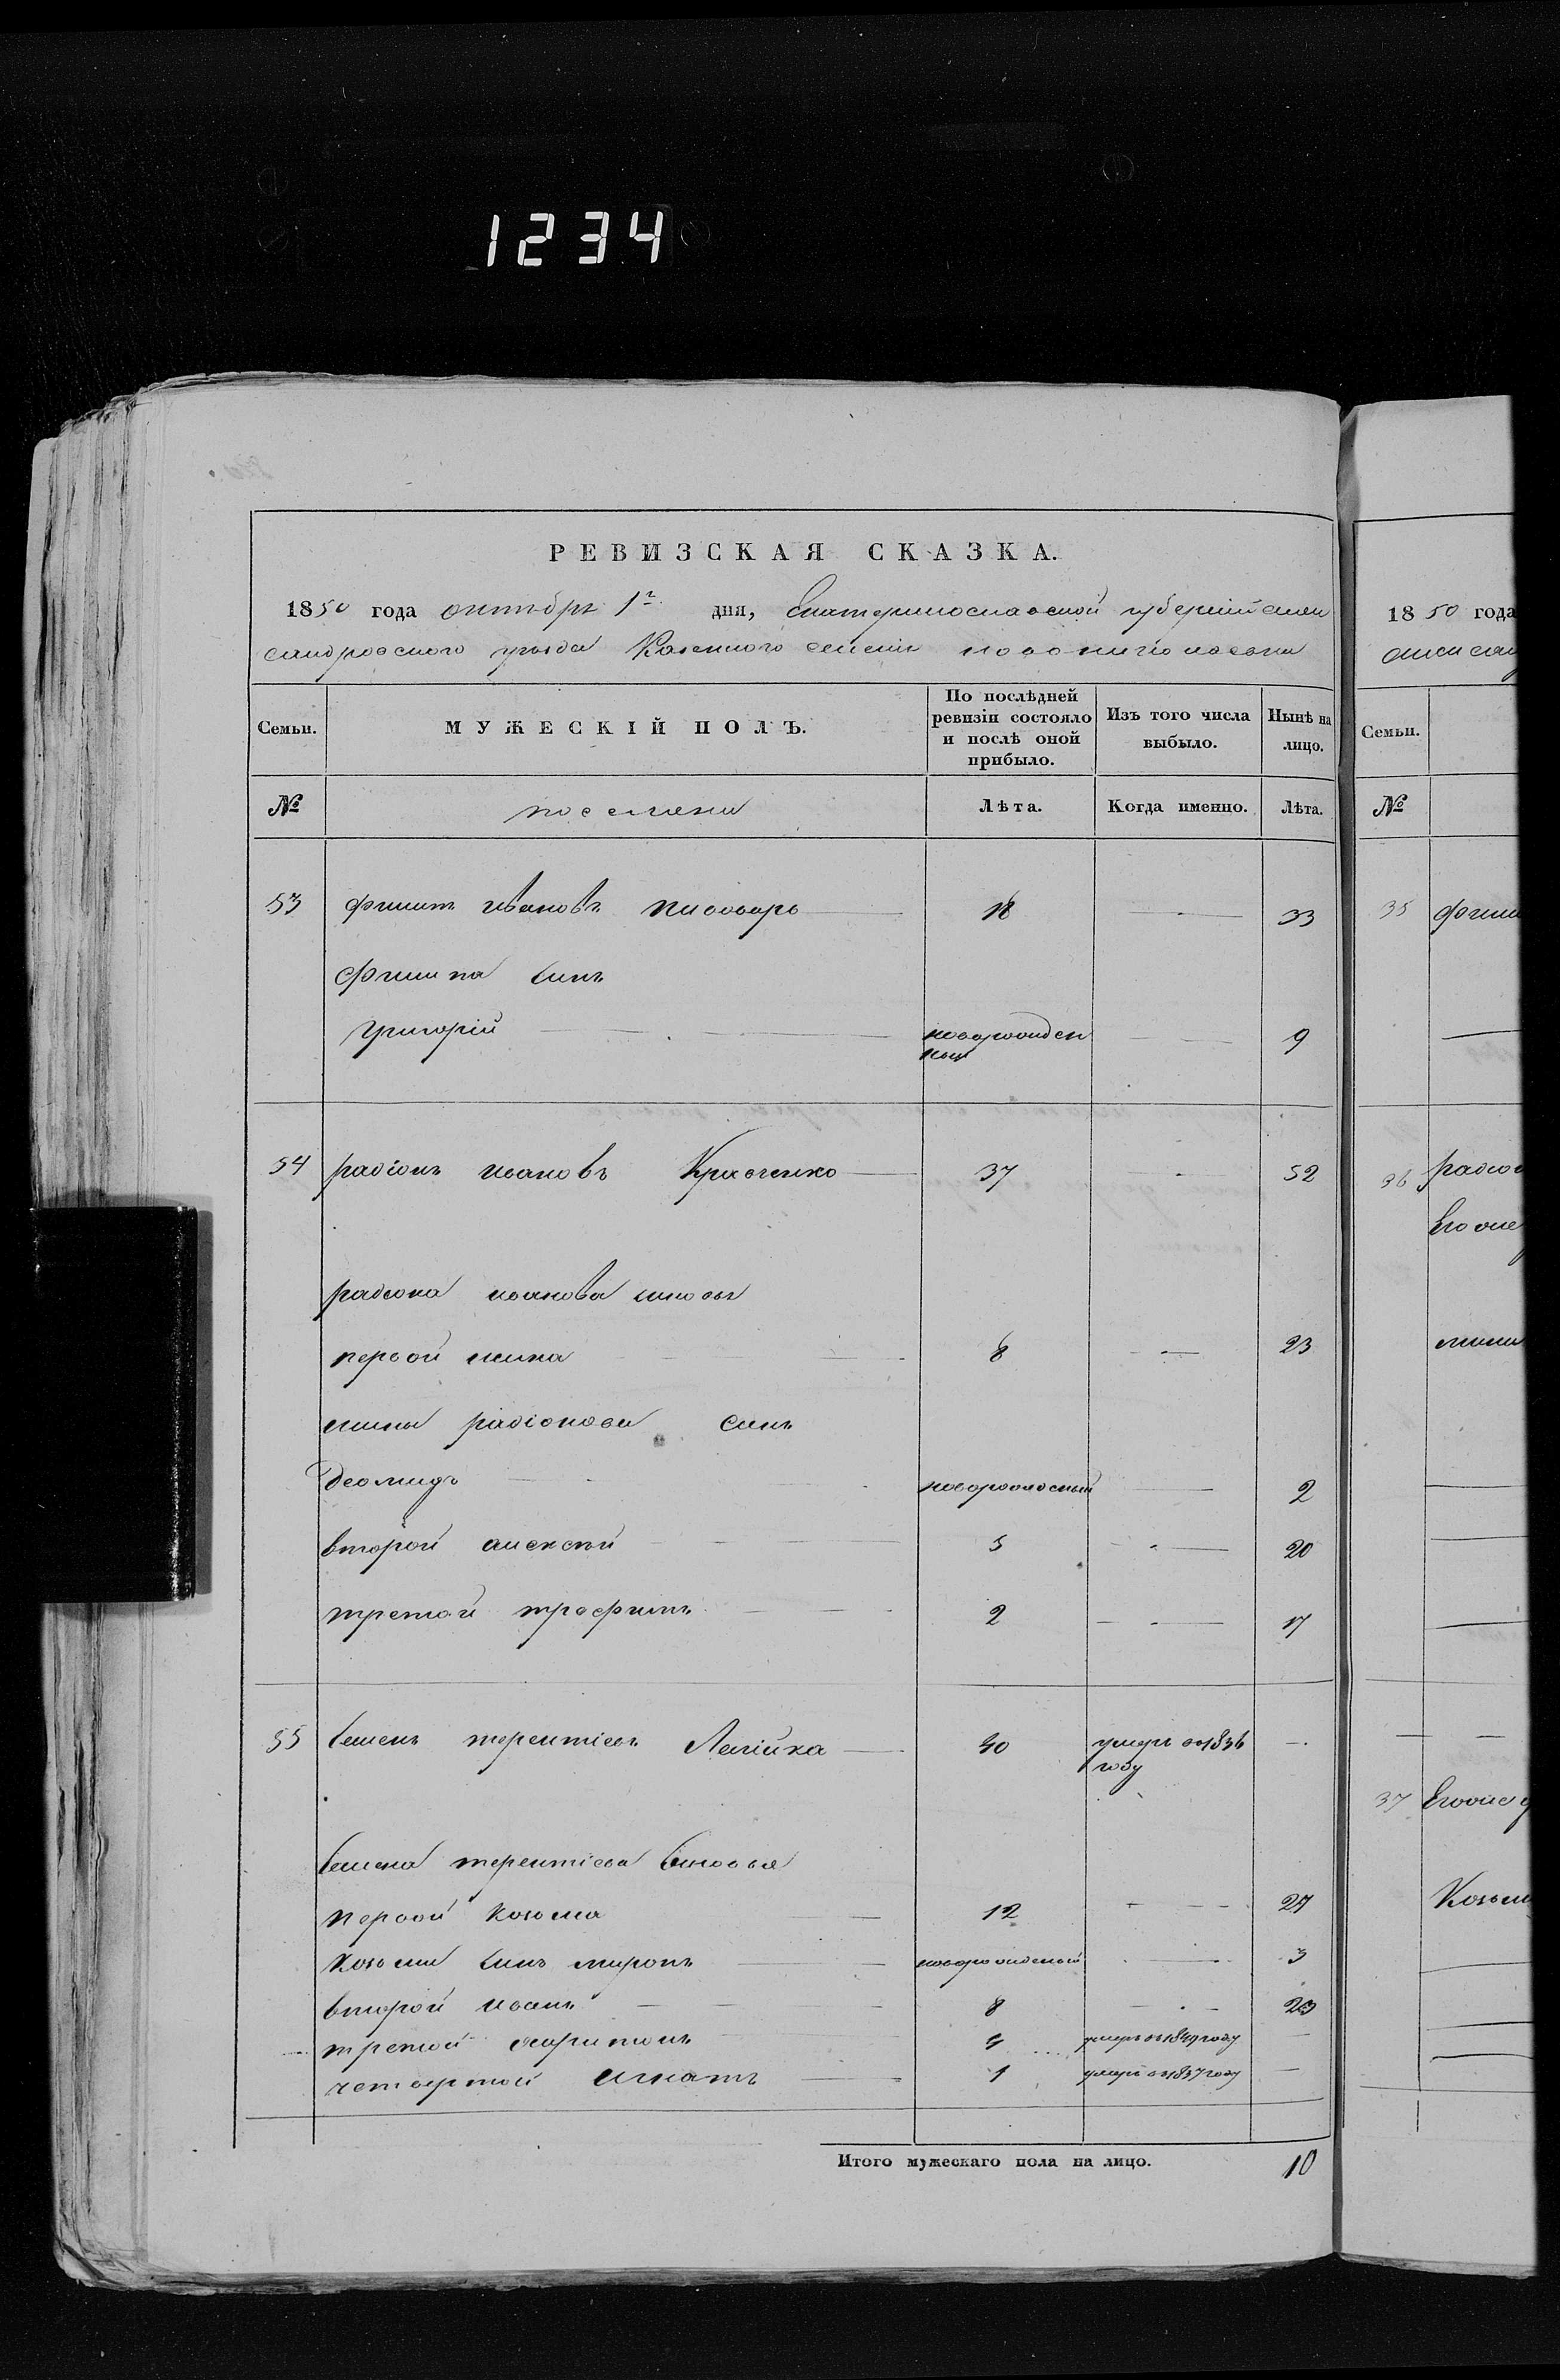 1234
РЕВИЗСКАЯ СКАЗКА.
1850 года октября 1го дня, Екатеринославской губернiи Алек
сандровского уезда Казенного селения новониколаевки
Семьи. МУЖЕСКІЙ ПОЛЪ. По послѣдней ревизіи состояло и послѣ оной прибыло. Изъ того числа выбыло. Нынѣ на лицо.
№ поселяни Лѣта. Когда именно. Лѣта.
53 филипъ ивановъ пивоваръ 18 33
Филипа синъ
григорій новорожден ный 9
54 радіонъ ивановъ Кравченко 37 52
радиона иванова синовья
первой мина 8 23
мины радіонова синъ
деомидъ новорожденый 2
второй алексей 5 20
третой трофимъ 2 17
55 Семенъ терентіевъ 40 умеръ в 1836 году
Семена терентіева Синовья
первой козьма 12 27
козьми синъ миронъ новорожденый 3
второй иванъ 8 23
третой харитонъ 4 умеръ в 1849 году
четвертой игнатъ 1 умеръ в 1837 году
Итого мужескаго пола на лицо. 10
1850 года
Семьи.
№
35
36
37